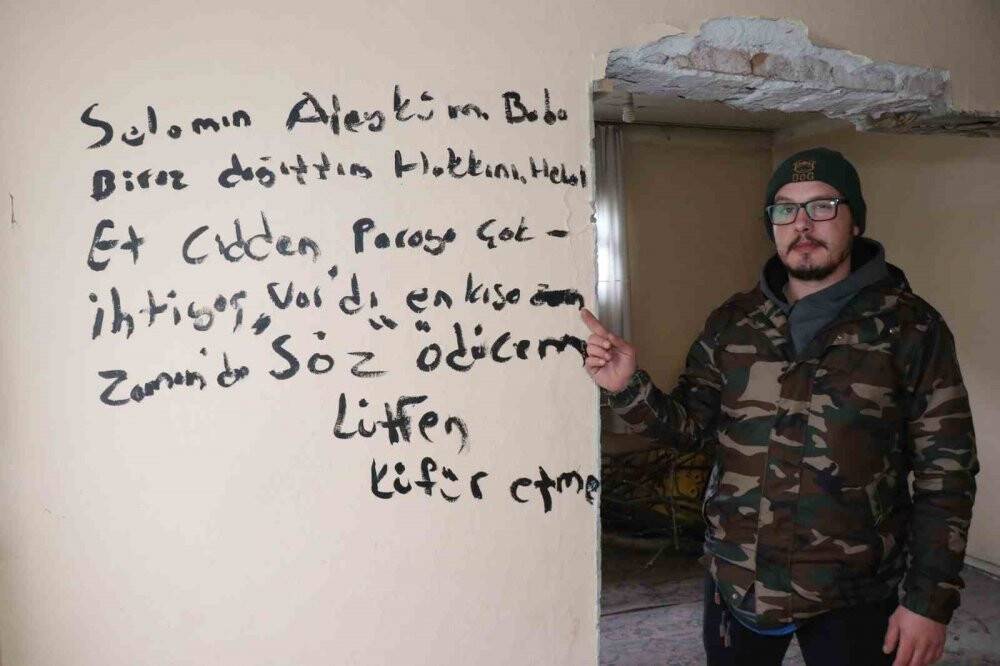 Selamın Aleyküm. Baba
Biraz dağıttım Hakkını, Helal
Et Cidden Paraya çok -
ihtiyaç, var'dı en kısa
Zaman'da "Söz" ödücem
Lütfen
küfür etme